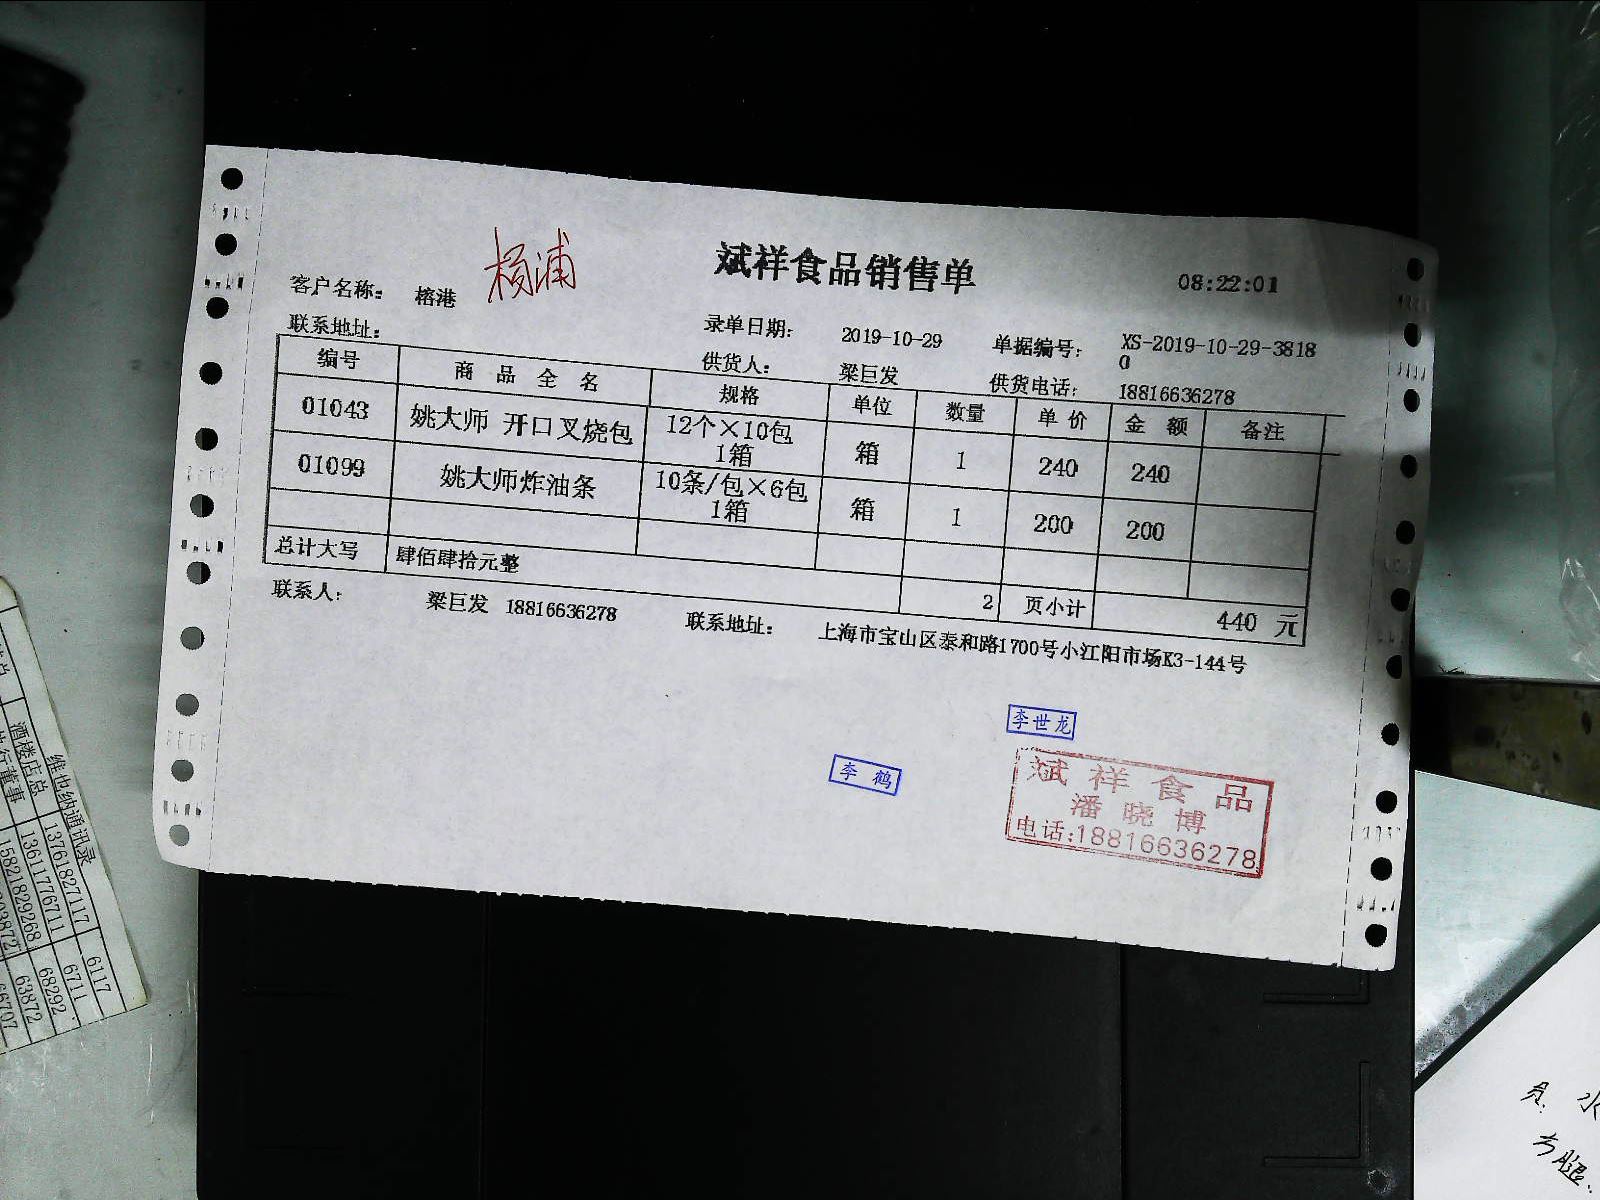 斌祥食品销售单
08:22:01
客户名称: 榕港 杨浦
联系地址: 录单日期: 2019-10-29 单据编号: XS-2019-10-29-38180
供货人: 梁巨发 供货电话: 18816636278
编号 商品全名 规格 单位 数量 单价 金额 备注
01043 姚大师 开口叉烧包 12个×10包1箱 箱 1 240 240
01099 姚大师炸油条 10条/包×6包1箱 箱 1 200 200
总计大写 肆佰肆拾元整 2 页小计 440 元
联系人: 梁巨发 18816636278 联系地址: 上海市宝山区泰和路1700号小江阳市场K3-144号
李世龙
李鹤
斌祥食品
潘晓博
电话:18816636278
维也纳通讯录
酒楼店总 13761827117 6117
13611776711 6711
15821829268 68292
63872